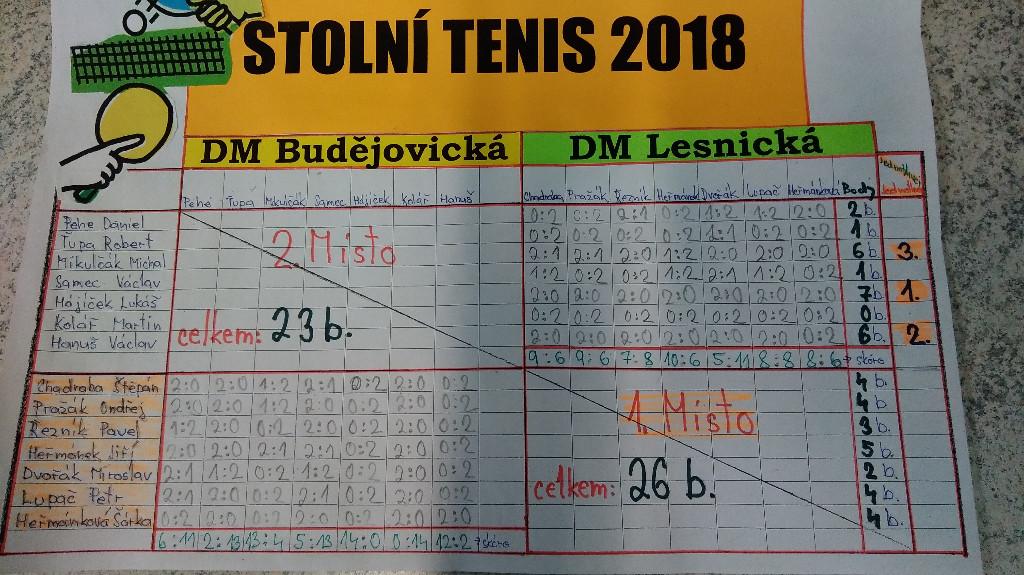 STOLNÍ TENIS 2018
DM Budějovická DM Lesnická
Pehe Ťupa Mikulčák Samec Hájíček Kolář Hanuš Chadraba Pražák Řezník Heřmánek Dvořák Lupač Heřmánková Body
Pehe Daniel 0:2 0:2 2:1 0:2 1:2 1:2 2:0 2 b.
Ťupa Robert 0:2 0:2 0:2 0:2 2:1 0:2 0:2 1 b.
Mikulčák Michal 2:1 2:1 2:0 1:2 2:0 2:0 2:0 6 b. 3.
Samec Václav 1:2 0:2 0:2 1:2 2:1 1:2 0:2 1 b.
Hájíček Lukáš 2:0 2:0 2:0 2:0 2:0 2:0 2:0 7 b. 1.
Kolář Martin 0:2 0:2 0:2 0:2 0:2 0:2 0:2 0 b.
Hanuš Václav 2:0 2:0 2:0 2:0 2:0 2:0 0:2 6 b. 2.
2. Místo
celkem: 23 b.
9:6 9:6 7:8 10:6 5:11 8:8 8:6 skóre
Chadraba Štěpán 2:0 2:0 1:2 2:1 0:2 2:0 0:2 4 b.
Pražák Ondřej 2:0 2:0 1:2 2:0 0:2 2:0 0:2 4 b.
Řezník Pavel 1:2 2:0 0:2 2:0 0:2 2:0 0:2 3 b.
Heřmánek Jiří 2:0 2:0 2:1 2:1 0:2 2:0 0:2 5 b.
Dvořák Miroslav 2:1 1:2 0:2 1:2 0:2 2:0 0:2 2 b.
Lupač Petr 2:1 2:0 0:2 2:1 0:2 2:0 0:2 4 b.
Heřmánková Šárka 0:2 2:0 0:2 2:0 0:2 2:0 2:0 4 b.
1. Místo
celkem: 26 b.
6:11 2:13 13:4 5:13 14:0 0:14 12:2 skóre